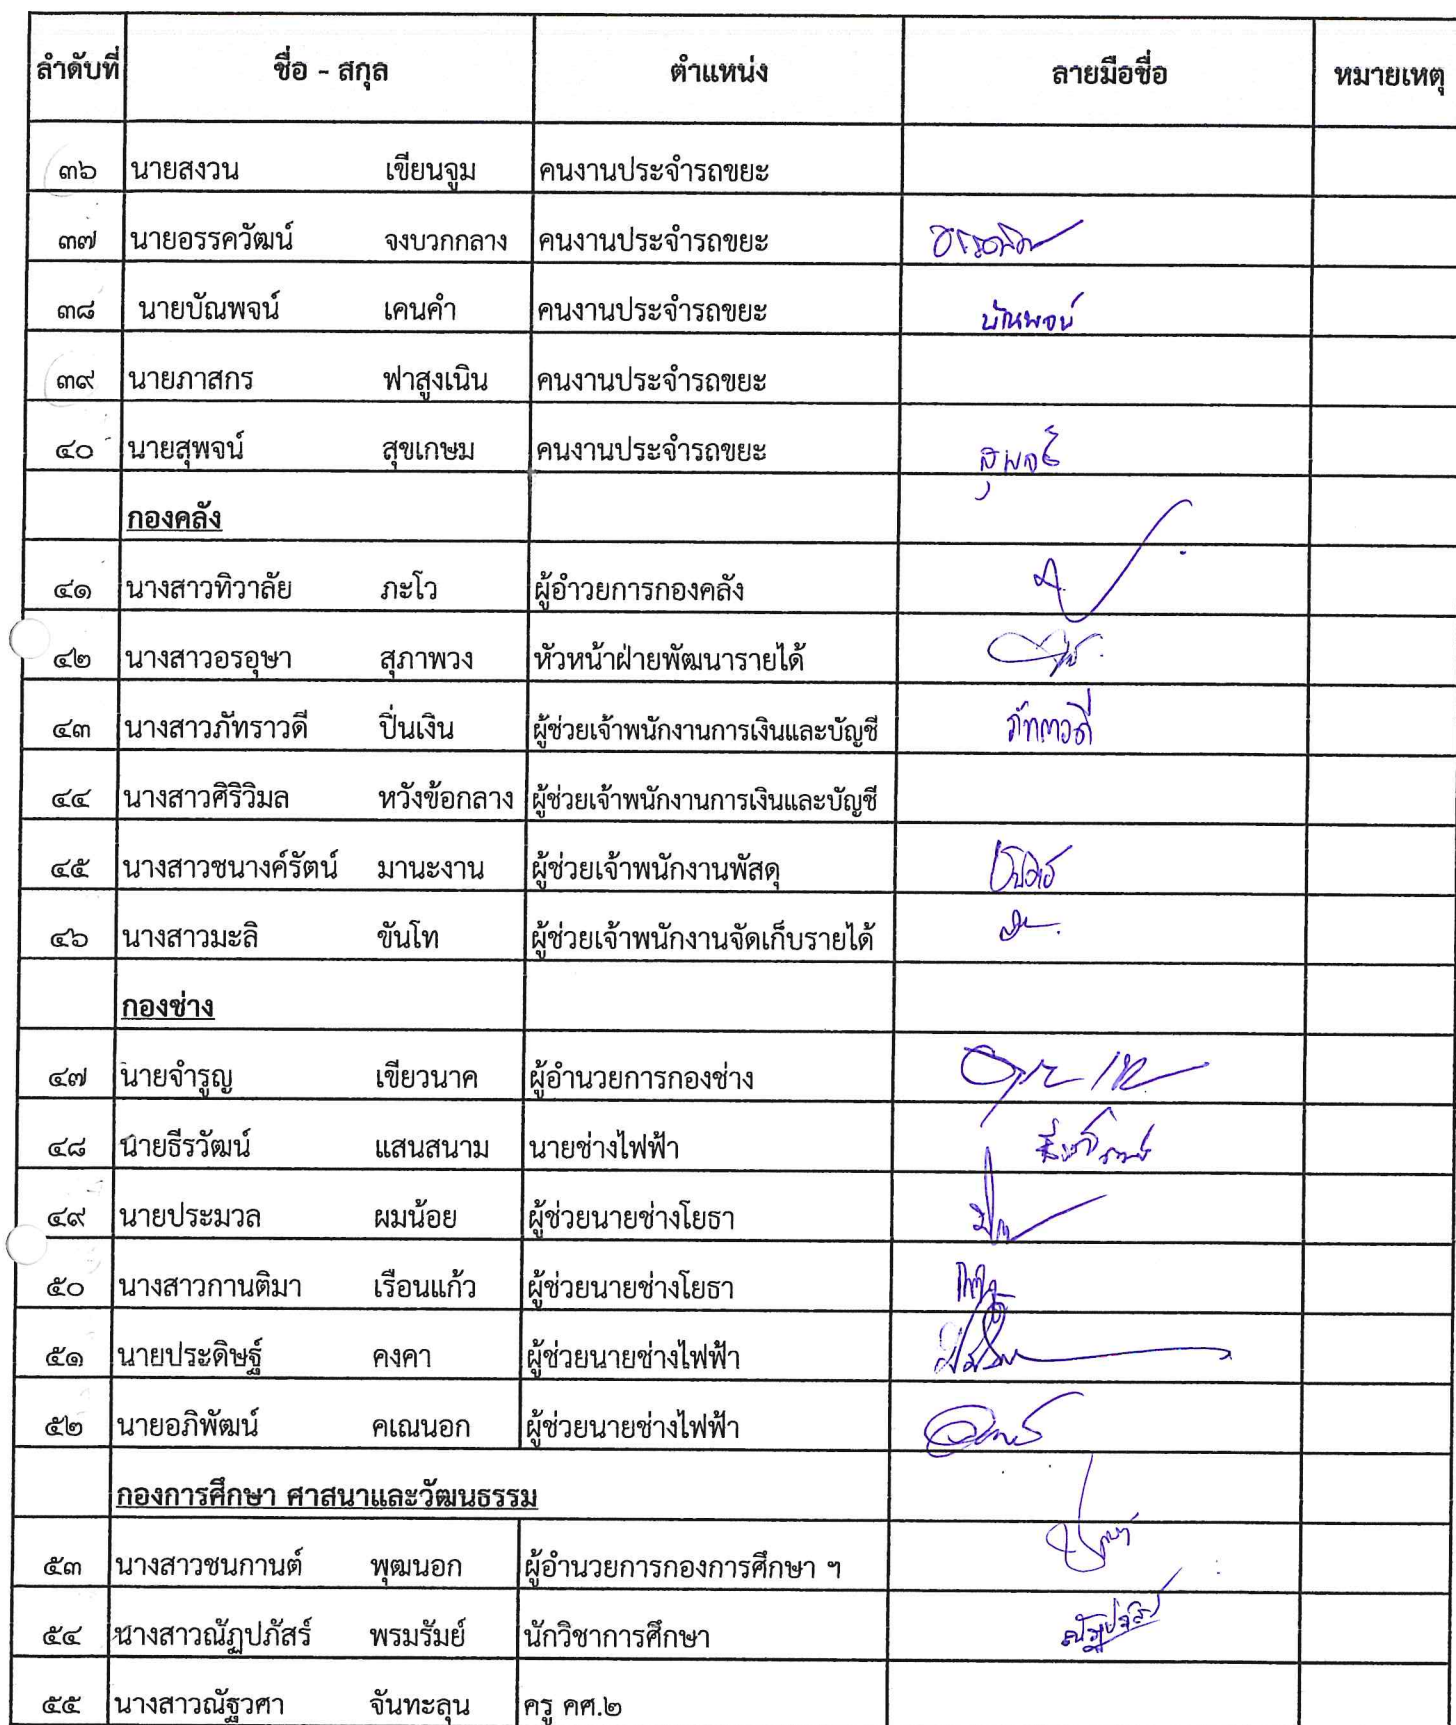 ลำดับที่ ชื่อ - สกุล ตำแหน่ง ลายมือชื่อ หมายเหตุ
๓๖ นายสงวน เขียนจูม คนงานประจำรถขยะ
๓๗ นายอรรควัฒน์ จงบวกกลาง คนงานประจำรถขยะ
๓๘ นายบัณพจน์ เคนคำ คนงานประจำรถขยะ บัณพจน์
๓๙ นายภาสกร ฟาสูงเนิน คนงานประจำรถขยะ
๔๐ นายสุพจน์ สุขเกษม คนงานประจำรถขยะ สุพจน์
กองคลัง
๔๑ นางสาวทิวาลัย ภะโว ผู้อำวยการกองคลัง
๔๒ นางสาวอรอุษา สุภาพวง หัวหน้าฝ่ายพัฒนารายได้
๔๓ นางสาวภัทราวดี ปิ่นเงิน ผู้ช่วยเจ้าพนักงานการเงินและบัญชี ภัทราวดี
๔๔ นางสาวศิริวิมล หวังข้อกลาง ผู้ช่วยเจ้าพนักงานการเงินและบัญชี
๔๕ นางสาวชนางค์รัตน์ มานะงาน ผู้ช่วยเจ้าพนักงานพัสดุ
๔๖ นางสาวมะลิ ขันโท ผู้ช่วยเจ้าพนักงานจัดเก็บรายได้
กองช่าง
๔๗ นายจำรูญ เขียวนาค ผู้อำนวยการกองช่าง
๔๘ นายธีรวัฒน์ แสนสนาม นายช่างไฟฟ้า
๔๙ นายประมวล ผมน้อย ผู้ช่วยนายช่างโยธา
๕๐ นางสาวกานติมา เรือนแก้ว ผู้ช่วยนายช่างโยธา
๕๑ นายประดิษฐ์ คงคา ผู้ช่วยนายช่างไฟฟ้า
๕๒ นายอภิพัฒน์ คเณนอก ผู้ช่วยนายช่างไฟฟ้า
กองการศึกษา ศาสนาและวัฒนธรรม
๕๓ นางสาวชนกานต์ พุฒนอก ผู้อำนวยการกองการศึกษา ฯ
๕๔ นางสาวณัฏปภัสร์ พรมรัมย์ นักวิชาการศึกษา
๕๕ นางสาวณัฐวศา จันทะลุน ครู คศ.๒